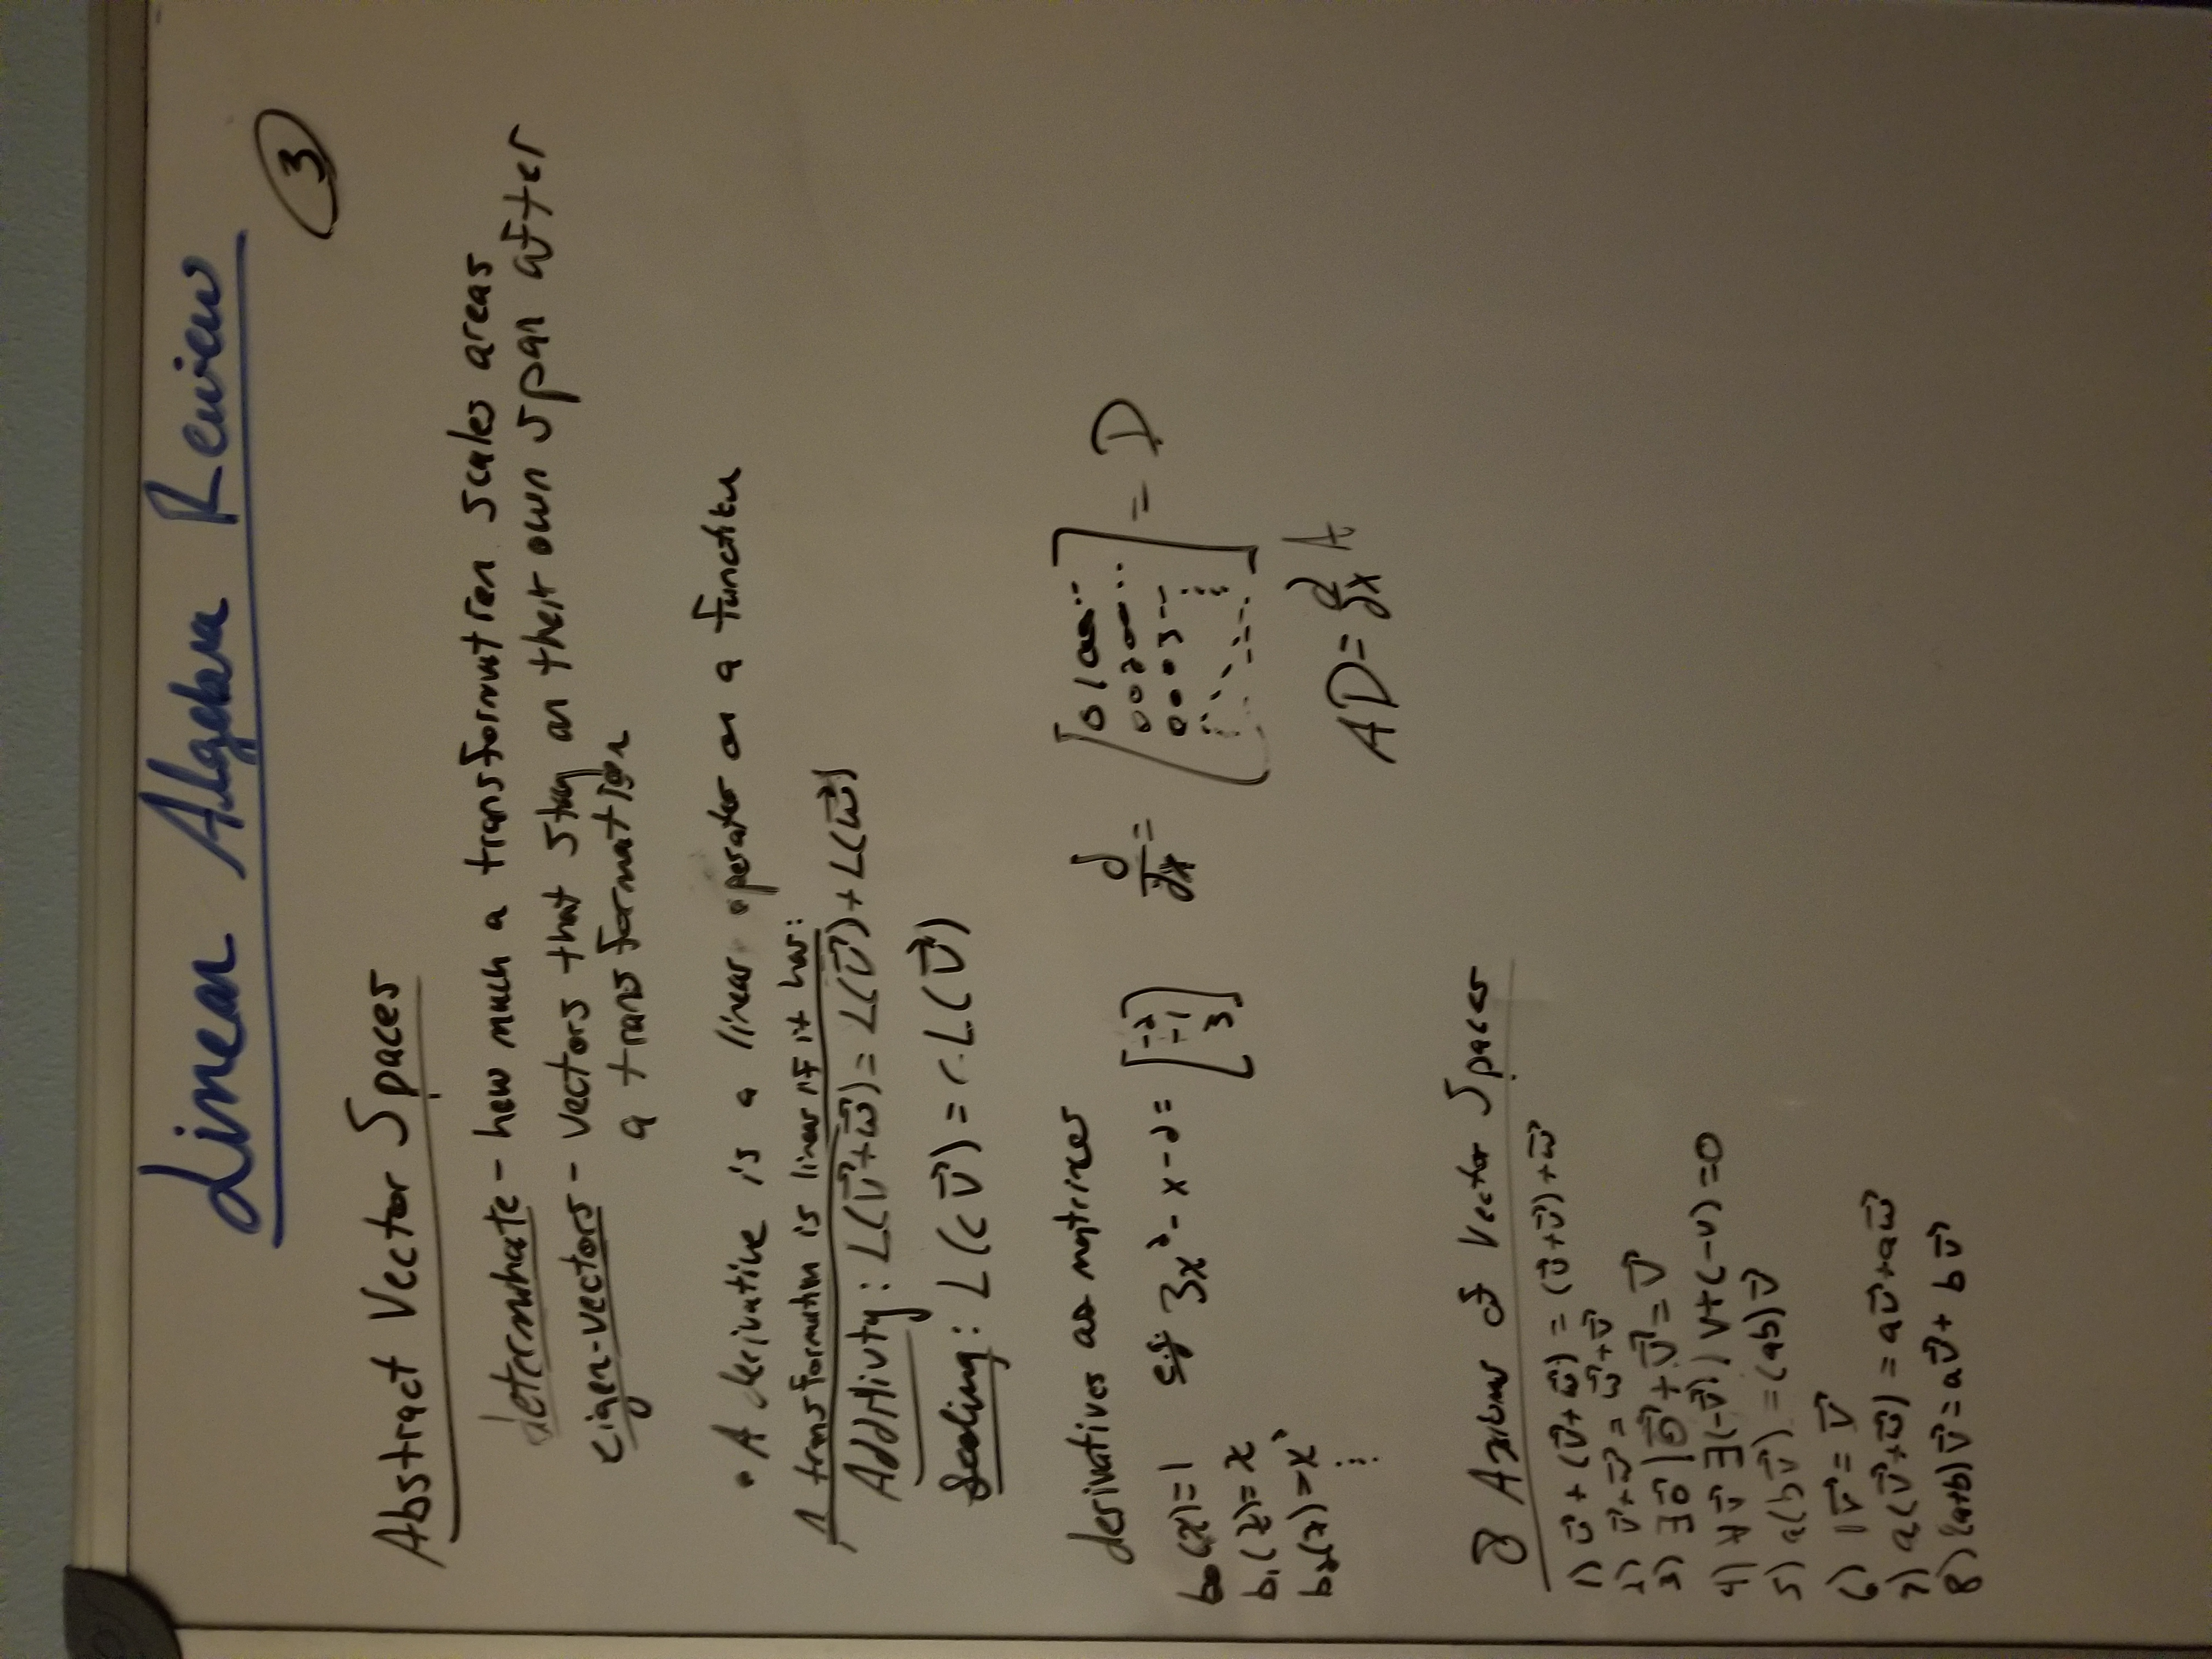 Linear Algebra Review
3
Abstract Vector Spaces
determinate - how much a transformation scales areas
eigen-vectors - vectors that stay on their own span after
a transformation
• A derivative is a linear operator on a function
A transformation is linear if it has:
Additivty: L(v⃗+w⃗) = L(v⃗) + L(w⃗)
Scaling: L(cv⃗) = cL(v⃗)
derivatives as matrixes
b₀(x)=1 e.g. 3x²-x-2 = [-2 -1 3] d/dx = [0 1 0 0 ... 0 0 2 0 0 ... 0 0 0 3 ...] = D
b₁(x)=x
b₂(x)=x²
⋮
AD = d/dx A
8 Axioms of Vector Spaces
1) u⃗ + (v⃗+w⃗) = (u⃗+v⃗)+w⃗
2) v⃗+w⃗ = w⃗+v⃗
3) ∃0⃗ | 0⃗+v⃗ = v⃗
4) ∀v⃗ ∃(-v⃗) | v+(-v) = 0
5) a(bv⃗) = (ab)v⃗
6) 1v⃗ = v⃗
7) a(v⃗+w⃗) = av⃗+aw⃗
8) (a+b)v⃗ = av⃗ + bv⃗